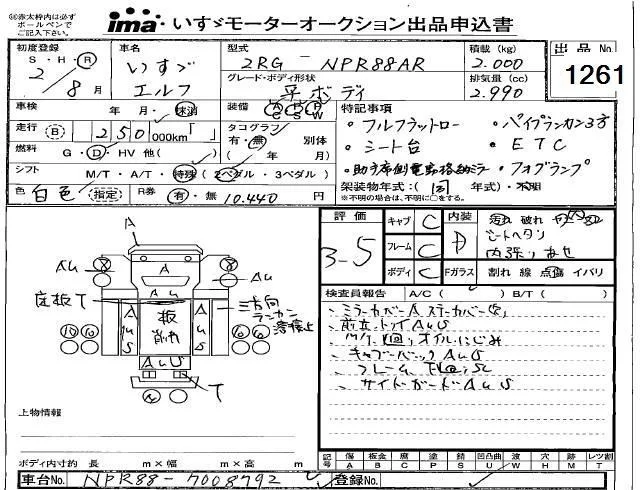 ㊟赤太枠内は必ず
ボールペンで
ご記入下さい。
ima いすゞモーターオークション出品申込書
初度登録
S・H・R
2/8月
車名
いすゞ
エルフ
型式
2RG-NPR88AR
グレード・ボディ形状
平ボディ
積載(kg)
2.000
排気量(cc)
2.990
出品No.
1261
車検 年・月・抹消
走行 B 250 000km
燃料 G・D・HV 他( )
シフト M/T・A/T・特殊(2ペダル・3ペダル)
色 白色 (指定) R券 有・無 10.440円
装備 AC PS PW
タコグラフ 別体
有・無
( 年/ 月)
特記事項
・フルフラットロー ・パイプランカン3方
・シート台 ・ETC
・助手席側電動格納ミラー ・フォグランプ
架装物年式:( 同 年式)・不明
※不明の場合は、不明に○をする。
評価
3-5
キャブ C
フレーム C
ボディ C
内装 D
汚れ 破れ
シートヘタリ
内張りあせ
Fガラス 割れ 線 点傷 イバリ
検査員報告 A/C( ) B/T( )
ミラーカバーA ステーカバーS
前立 トリイAUS
M/T廻りオイルにじみ
キャブバックAUS
フレーム下回りSC
サイドガードAUS
A
AU
AU
床板T
AUS
板
削れ
AUS
三方向
ランカン
溶接止
AUS
T
上物情報
ボディ内寸約 長 m×幅 m×高 m
記号
傷 A
板金 B
瘢 C
塗 P
錆 S
凹凸曲 U
波 W
穴 H
跡 M
レツ割 T
車台No. NPR88-7008792
登録No.